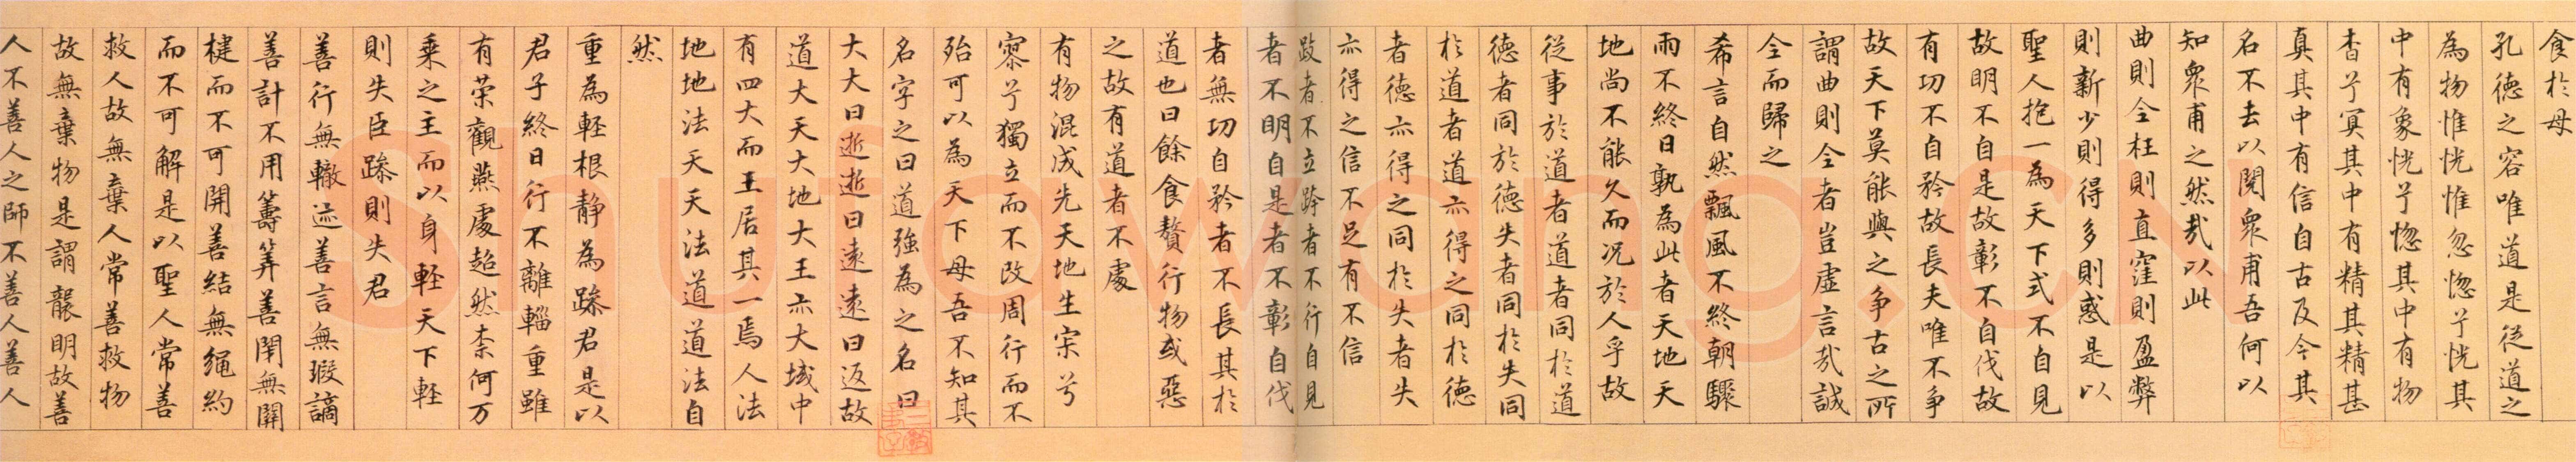 食於母
孔德之容唯道是從道之
為物惟恍惟忽惚兮恍其
中有象恍兮惚其中有物
杳兮冥其中有精其精甚
真其中有信自古及今其
名不去以閱衆甫吾何以
知衆甫之然哉以此
曲則全枉則直窪則盈弊
則新少則得多則惑是以
聖人抱一為天下式不自見
故明不自是故彰不自伐故
有功不自矜故長夫唯不爭
故天下莫能與之爭古之所
謂曲則全者豈虛言哉誠
全而歸之
希言自然飄風不終朝驟
雨不終日孰為此者天地天
地尚不能久而況於人乎故
從事於道者道者同於道
德者同於德失者同於失同
於道者道亦得之同於德
者德亦得之同於失者失
亦得之信不足有不信
跂者不立跨者不行自見
者不明自是者不彰自伐
者無功自矜者不長其於
道也曰餘食贅行物或惡
之故有道者不處
有物混成先天地生宗兮
寥兮獨立而不改周行而不
殆可以為天下母吾不知其
名字之曰道強為之名曰
大大曰逝逝曰遠遠曰返故
道大天大地大王亦大域中
有四大而王居其一焉人法
地地法天天法道道法自
然
重為輕根靜為躁君是以
君子終日行不離輜重雖
有榮觀燕處超然柰何万
乘之主而以身輕天下輕
則失臣躁則失君
善行無轍迹善言無瑕謫
善計不用籌筭善閉無關
楗而不可開善結無繩約
而不可解是以聖人常善
救人故無棄人常善救物
故無棄物是謂襲明故善
人不善人之師不善人善人